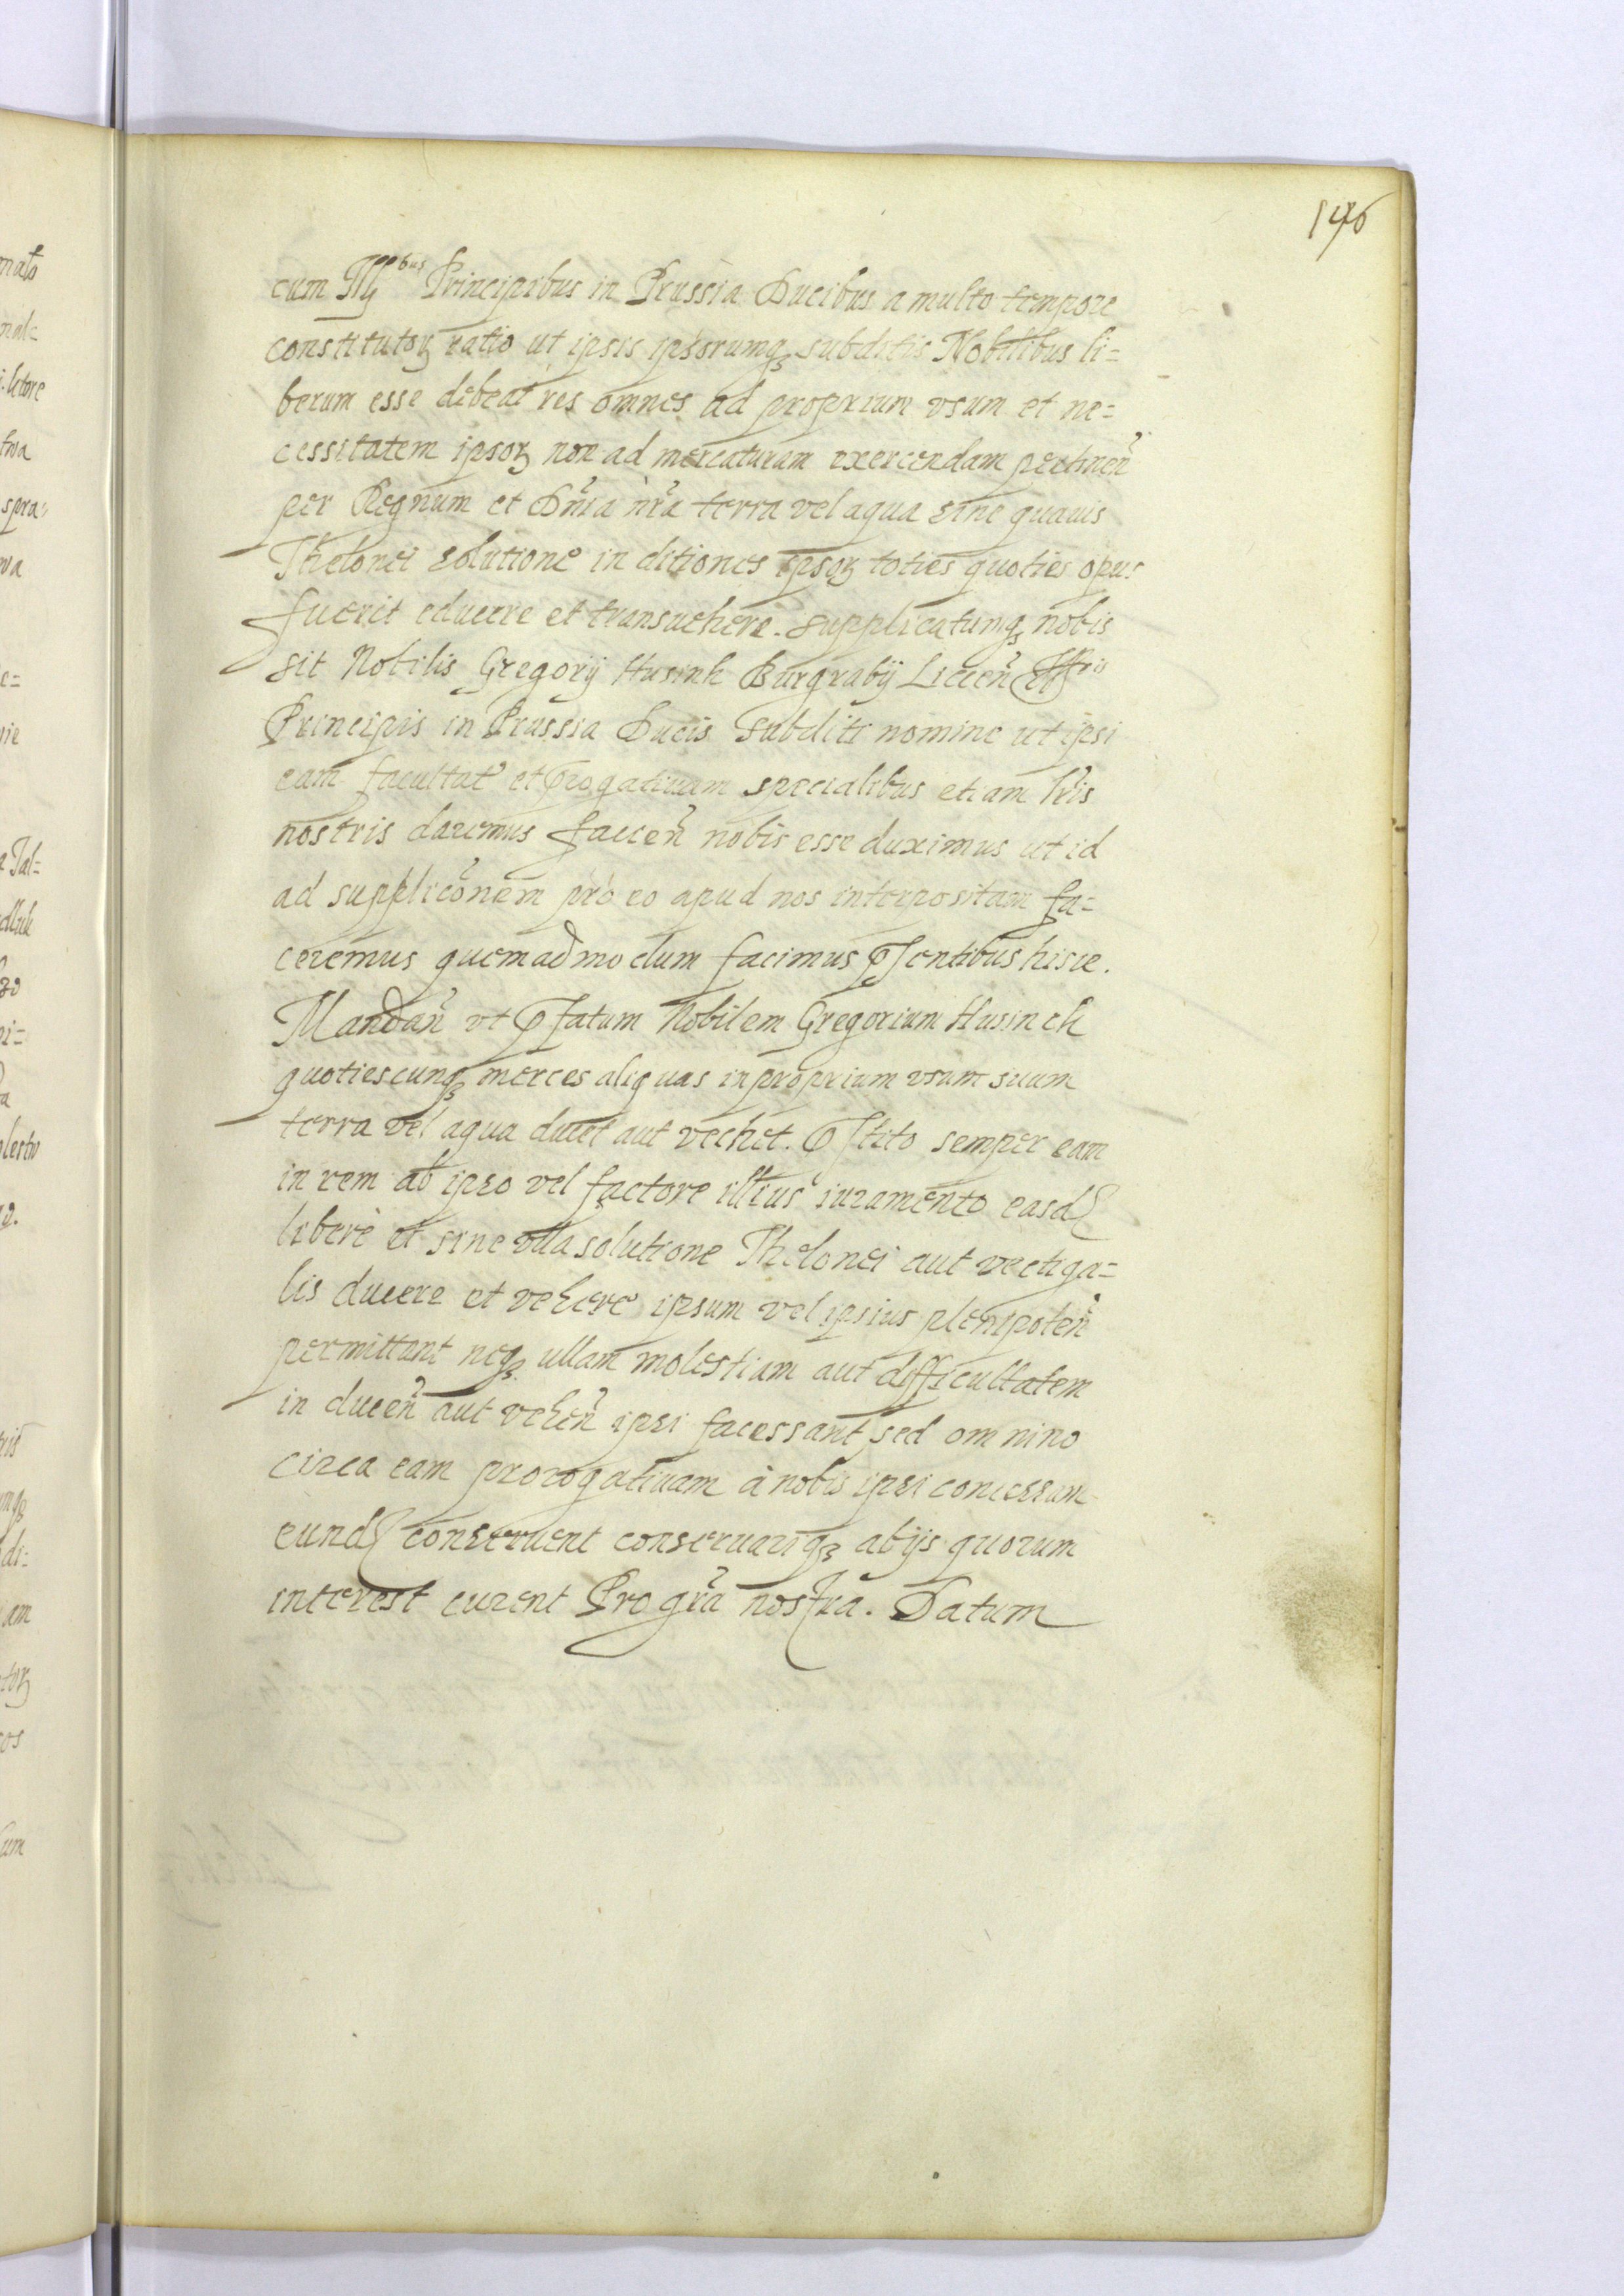 146
cum Ill^bus Principibus in Prussia Ducibus a multo tempore
constitutoꝝ ratio ut ipsis ipsorumqꝫ subditis Nobilibus li=
berum esse debeat res omnes ad proprium vsum et ne=
cessitatem ipsoꝝ non ad mercaturam exercendam pertinen̄
per Regnum et Dn̄ia nr̄a terra vel aqua sine quauis
Thelonei solutione in ditiones ipsoꝝ toties quoties opus
fuerit educere et transuehere. Supplicatumqꝫ nobis
sit Nobilis Gregorij Husinh Burgrabij Liccen̄ Ill^ris
Principis in Prussia Ducis Subditi nomine ut ipsi
eam facultat̄ et p̄rogatiuam specialibus etiam lr̄is
nostris daremus faccen̄ nobis esse duximus ut id
ad supplicōnem pro eo apud nos interpositam fa=
ceremus quemadmodum facimus p̄sentibus hisce.
Mandan̄ vt p̄fatum Nobilem Gregorium Husinch
quotiescunqꝫ merces aliquas in proprium vsum suum
terra vel aqua ducet aut vechet. P̄stito semper eam
in rem ab ipso vel factore illius iuramento easd̄
liberè et sine vlla solutione Thelonei aut vectiga=
lis ducere et vehere ipsum vel ipsius plenipoten̄
permittant neqꝫ ullam molestiam aut difficultatem
in ducen̄ aut vehen̄ ipsi facessant sed omnino
circa eam prorogatiuam à nobis ipsi concessam
eund̄ conseruent conseruariqꝫ ab ijs quorum
interest curent Pro gr̄a nostra. Datum